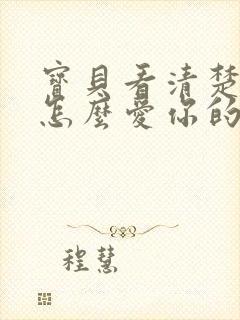 寶貝看清楚
怎麼愛你的
程慧